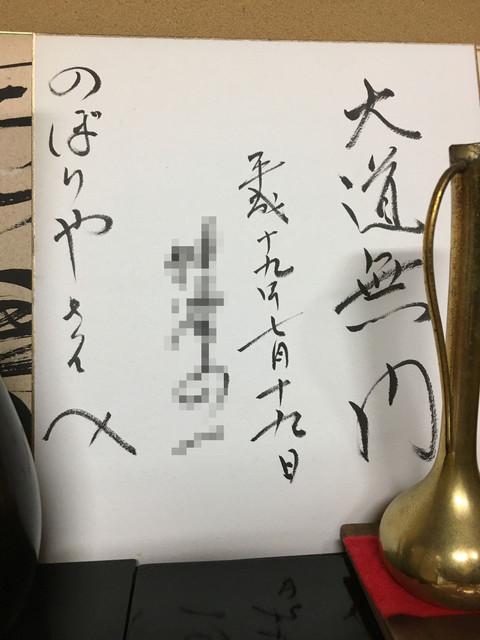 大道無門
平成十九年七月十九日
のぼりやさんへ